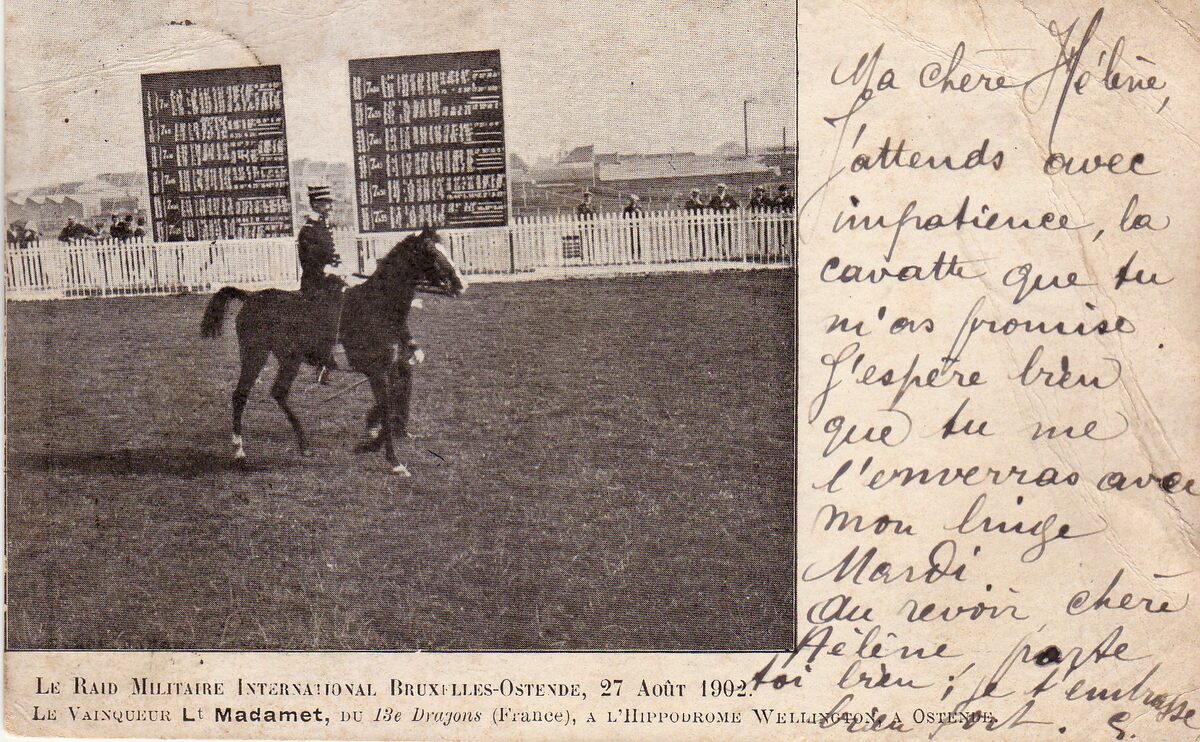 Ma chère Hélène,
J'attends avec
impatience, la
cavatte que tu
m'as promise
J'espère bien
que tu me
l'enverras avec
mon linge
Mardi
au revoir chère
Hélène, porte
toi bien; je t'embrasse
bien fort. G.
LE RAID MILITAIRE INTERNATIONAL BRUXELLES-OSTENDE, 27 AOÛT 1902.
LE VAINQUEUR Lt Madamet, DU 13e Dragons (France), A L'HIPPODROME WELLINGTON, A OSTENDE.